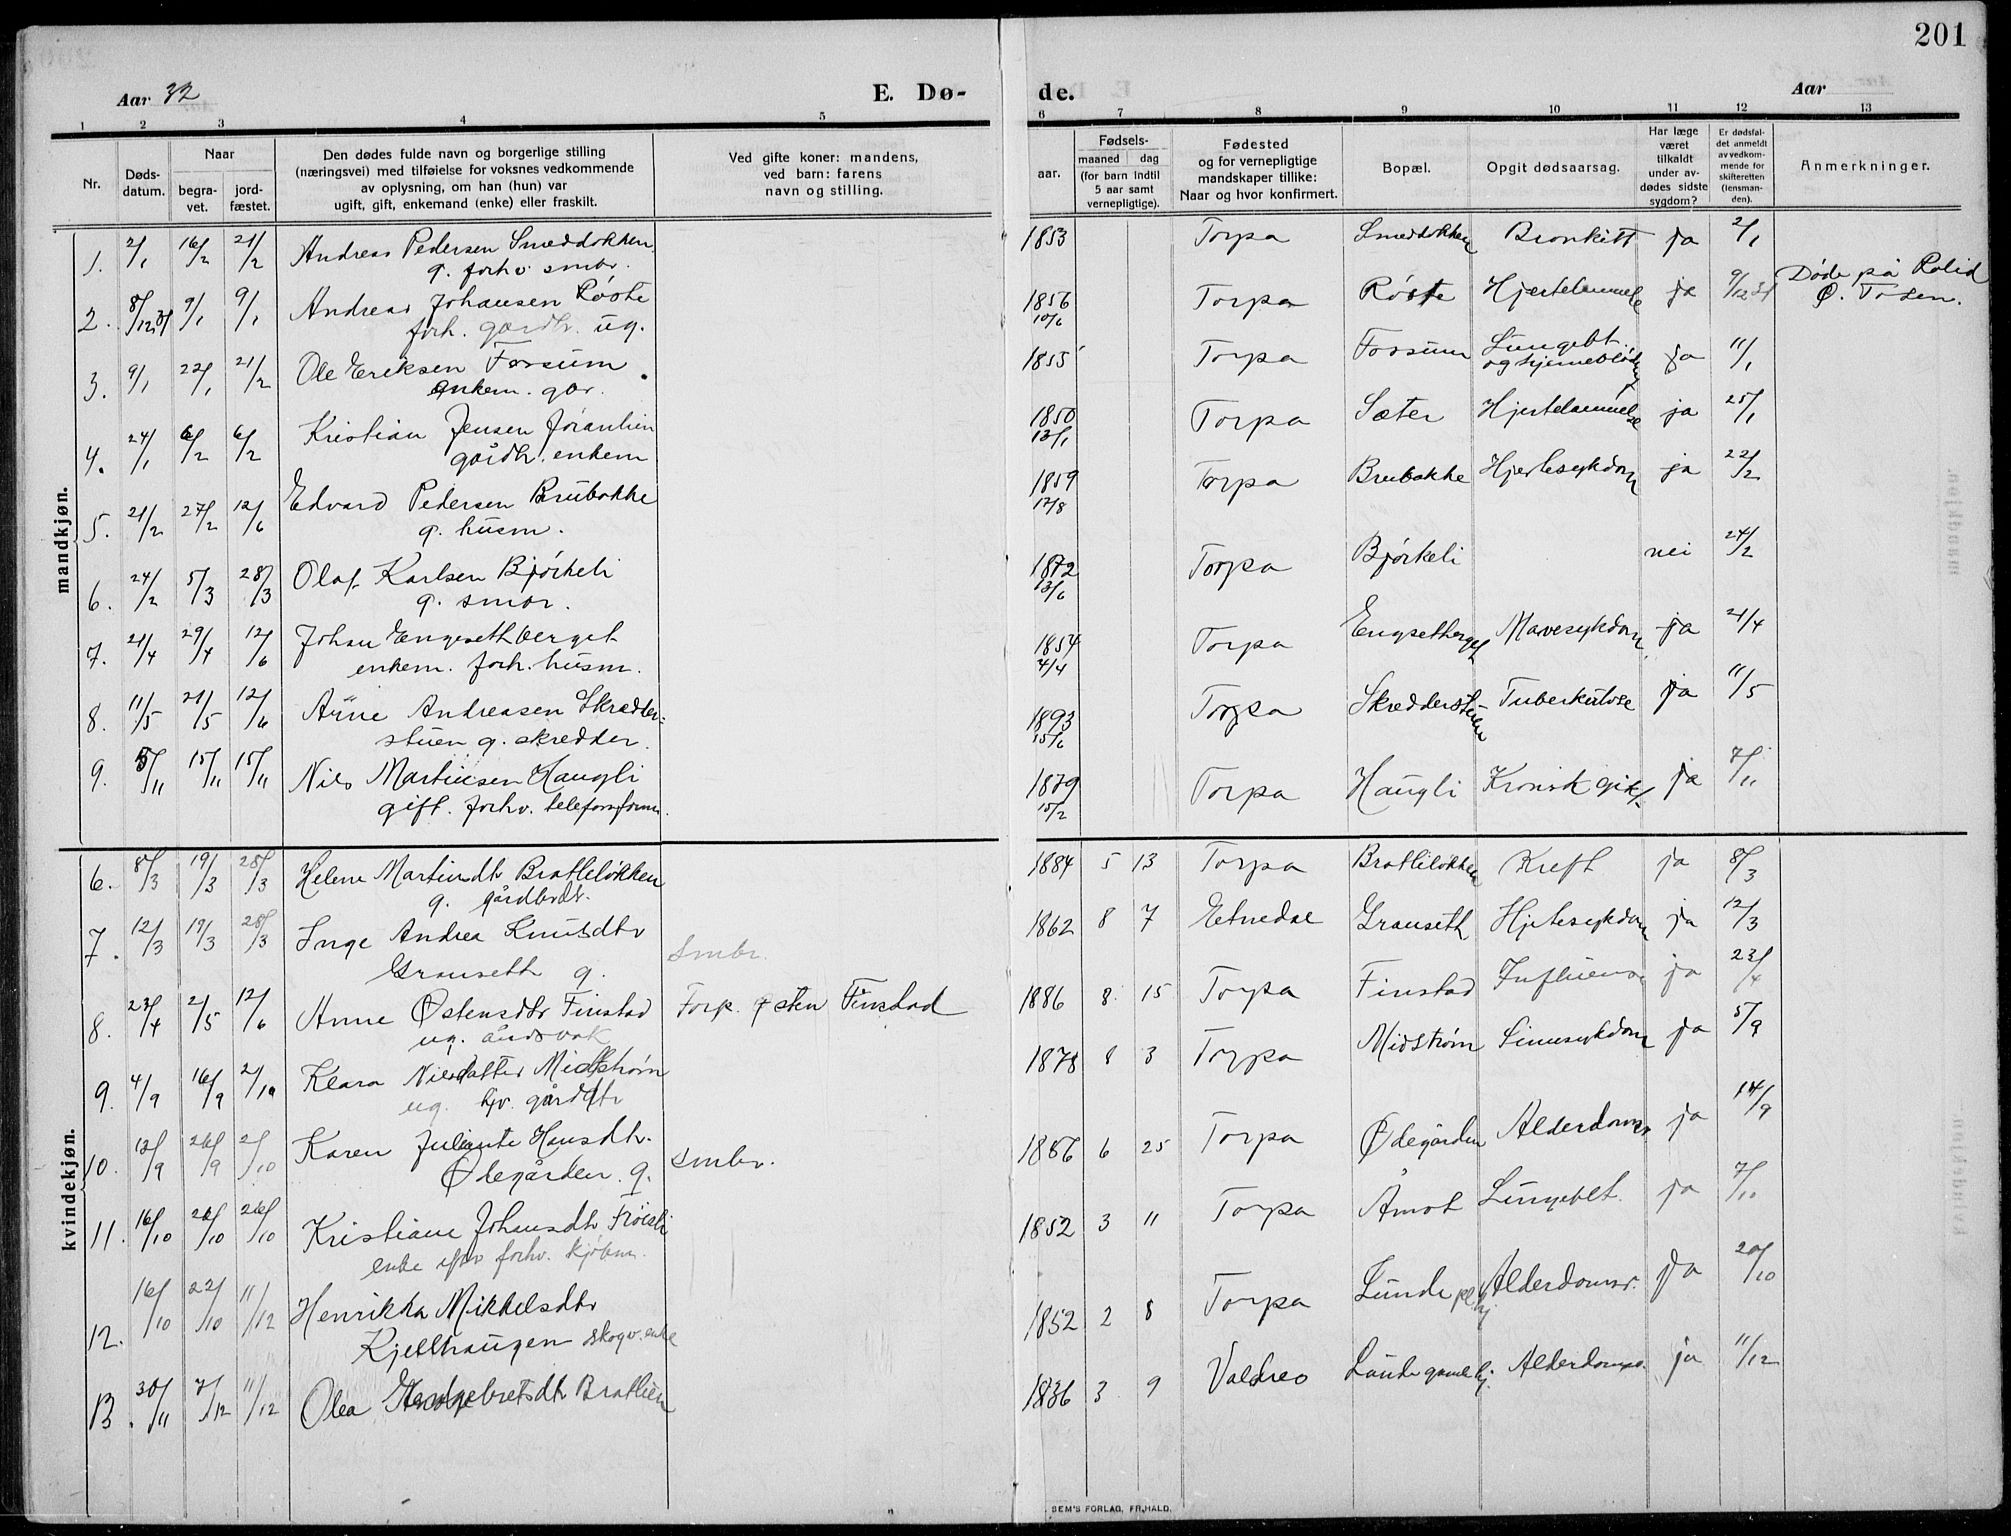 201
Aar 32
E. Dø-
de.
Aar
1 2 3 4 5 6 7 8 9 10 11 12 13
Nr.
Døds-
datum.
Naar
begra-
vet.
jord-
fæstet.
Den dødes fulde navn og borgerlige stilling
(næringsvei) med tilføielse for voksnes vedkommende
av oplysning, om han (hun) var
ugift, gift, enkemand (enke) eller fraskilt.
Ved gifte koner: mandens,
ved barn: farens
navn og stilling.
Fødsels-
aar.
maaned dag
(for barn indtil
5 aar samt
vernepligtige).
Fødested
og for vernepligtige
mandskaper tillike:
Naar og hvor konfirmert.
Bopæl.
Opgit dødsaarsag.
Har læge
været
tilkaldt
under av-
dødes sidste
sygdom?
Er dødsfal-
det anmeldt
av vedkom-
mende for
skifteretten
(lensman-
den).
Anmerkninger.
mandkjøn.
1. 2/1 16/2 21/2 Andreas Pedersen Smeddokken 1853 Torpa Smeddokken Bronkitt ja 2/1
g. forhv. smbr.
2. 8/12 31 9/1 9/1 Andreas Johansen Røste 1856 10/6 Torpa Røste Hjertelammelse ja 9/12 31 Døde på Rolid
forh. gårdbr. ug. Ø. Toten.
3. 9/1 22/1 21/2 Ole Eriksen Fossum 1855 Torpa Fossum Lungebt. ja 11/1
enkem. gbr. og hjerneblødn
4. 24/1 6/2 6/2 Kristian Jensen Jøranlien 1850 13/1 Torpa Sæter Hjertelammelse ja 25/1
gårdbr. enkem
5. 21/2 27/2 12/6 Edvard Pedersen Brubakke 1859 17/8 Torpa Brubakke Hjertesykdom ja 22/2
g. husm.
6. 24/2 5/3 28/3 Olaf Karlsen Bjørkeli 1872 13/6 Torpa Bjørkeli nei 24/2
g. smbr.
7. 21/4 29/4 12/6 Johan Engesethberget 1854 4/4 Torpa Engsetberget Mavesykdom ja 21/4
enkem. forh. husm.
8. 11/5 21/5 12/6 Arne Andreasen Skredder- 1893 15/6 Torpa Skredderstuen Tuberkulose ja 11/5
stuen g. skredder.
9. 5/11 15/11 15/11 Nils Martinsen Haugli 1879 15/2 Torpa Haugli Kronisk gikt. ja 7/11
gift. forhv. telefonform.
kvindekjøn.
6. 8/3 19/3 28/3 Helene Martinsdtr Bratliløkken 1884 5 13 Torpa Bratliløkken Kreft ja 8/3
g. gårdbrdtr.
7. 12/3 19/3 28/3 Inge Andrea Knutsdtr Smbr. 1862 8 7 Etnedal Granseth Hjertesykdom ja 12/3
Granseth g.
8. 23/4 2/5 12/6 Anne Østensdtr Finstad Forp. Østen Finstad 1886 8 15 Torpa Finstad Influensa ja 23/4
ug. åndsvak
9. 4/9 16/9 2/10 Klara Nilsdatter Midtstrøm 1878 8 3 Torpa Midstrøm Sinnsykdom ja 5/9
ug. gårddtr
10. 13/9 26/9 2/10 Karen Juliante Hansdtr. smbr. 1856 6 25 Torpa Ødegården Alderdomsv. ja 14/9
Ødegården. g.
11. 16/10 26/10 26/10 Kristiane Johansdtr Frøisli 1852 3 11 Torpa Åmot Lungeblt. ja 7/10
enke efter forhv. kjøbm.
12. 16/10 22/10 11/12 Henrikka Mikkelsdtr 1852 2 8 Torpa Lunde pl.hj. Alderdomsv. ja 20/10
Kjellhaugen skogv. enke
13. 30/11 7/12 11/12 Olea Bratlien 1836 3 9 Valdres Lunde gamlehj. Alderdomsv. ja 11/12
SEM'S FORLAG, FR.HALD.